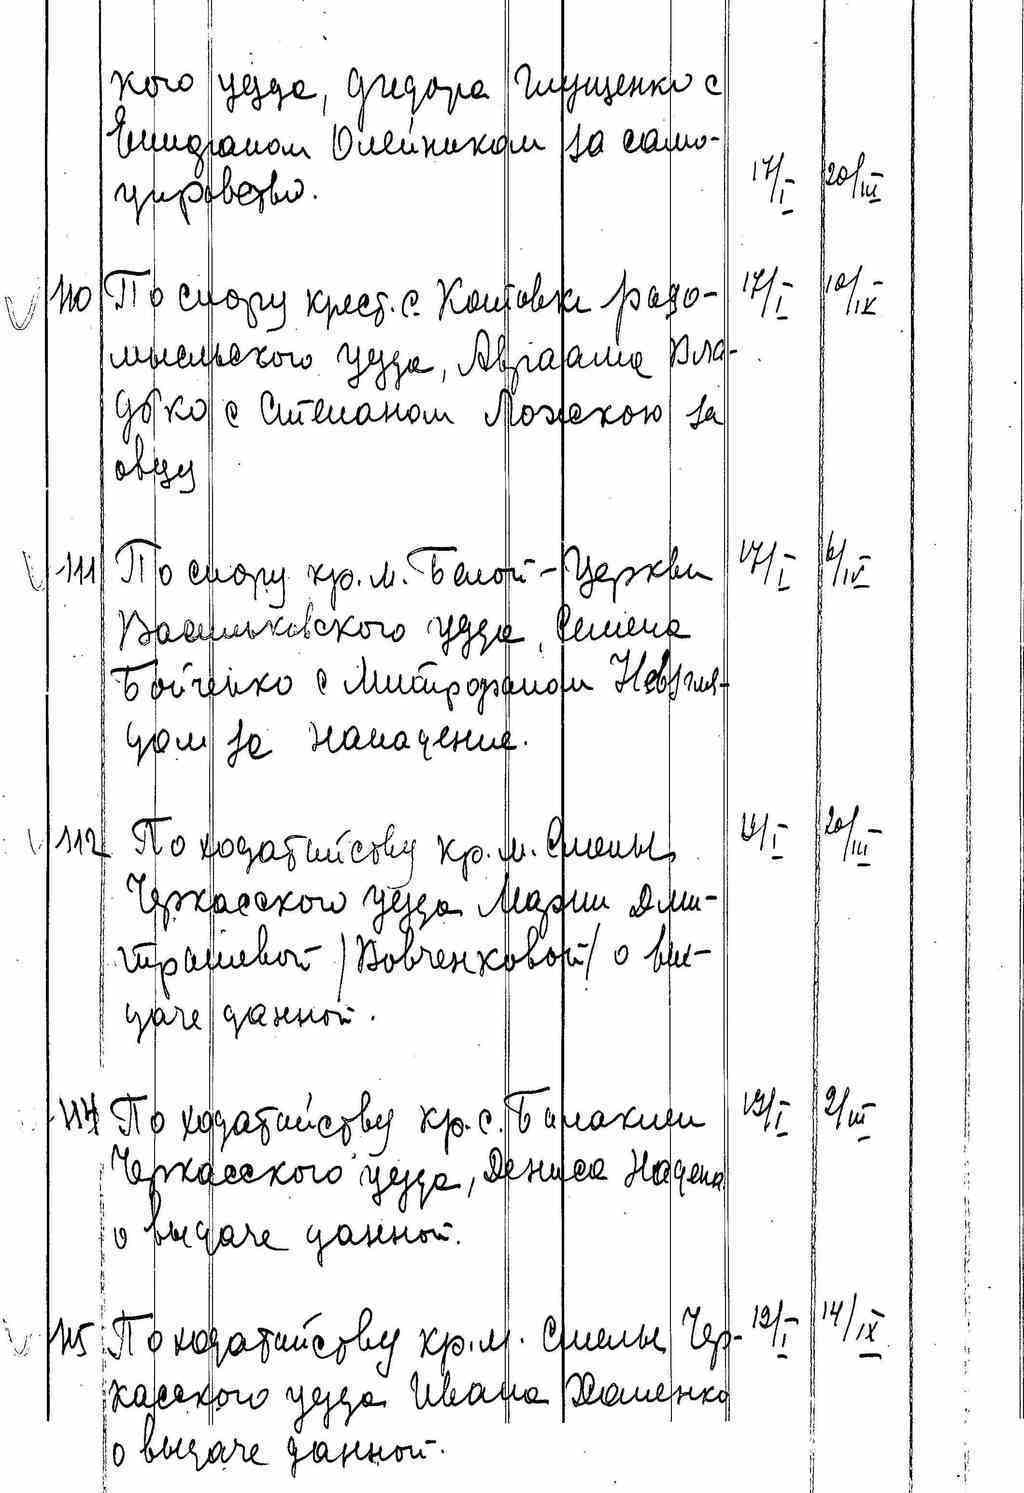 кого уезда, Федора Глущенко с
Епифаном Олейником за само-
управство. 17/I 20/III
110 По спору крест. с. Котовки радо- 17/I 10/IX
мысльского уезда, Авраама Вла-
дыко с Степаном Ложскою за
овцу
111 По спору кр. м. Белой-Церкви 17/I 6/IV
Васильковского уезда, Семена
Бойченко с Митрофаном Невгля-
дом за нападение.
112 По ходатайству кр. м. Смелы, 19/I 20/III
Черкасского уезда Марии Дми-
трашевой /Вовченковой/ о вы-
даче данной.
114 По ходатайству кр. с. Балаклеи 19/I 2/III
Черкасского уезда, Дениса Надена
о выдаче данной.
115 По ходатайству кр. м. Смелы Чер- 19/I 14/IX
касского уезда Ивана Хоменко
о выдаче данной.